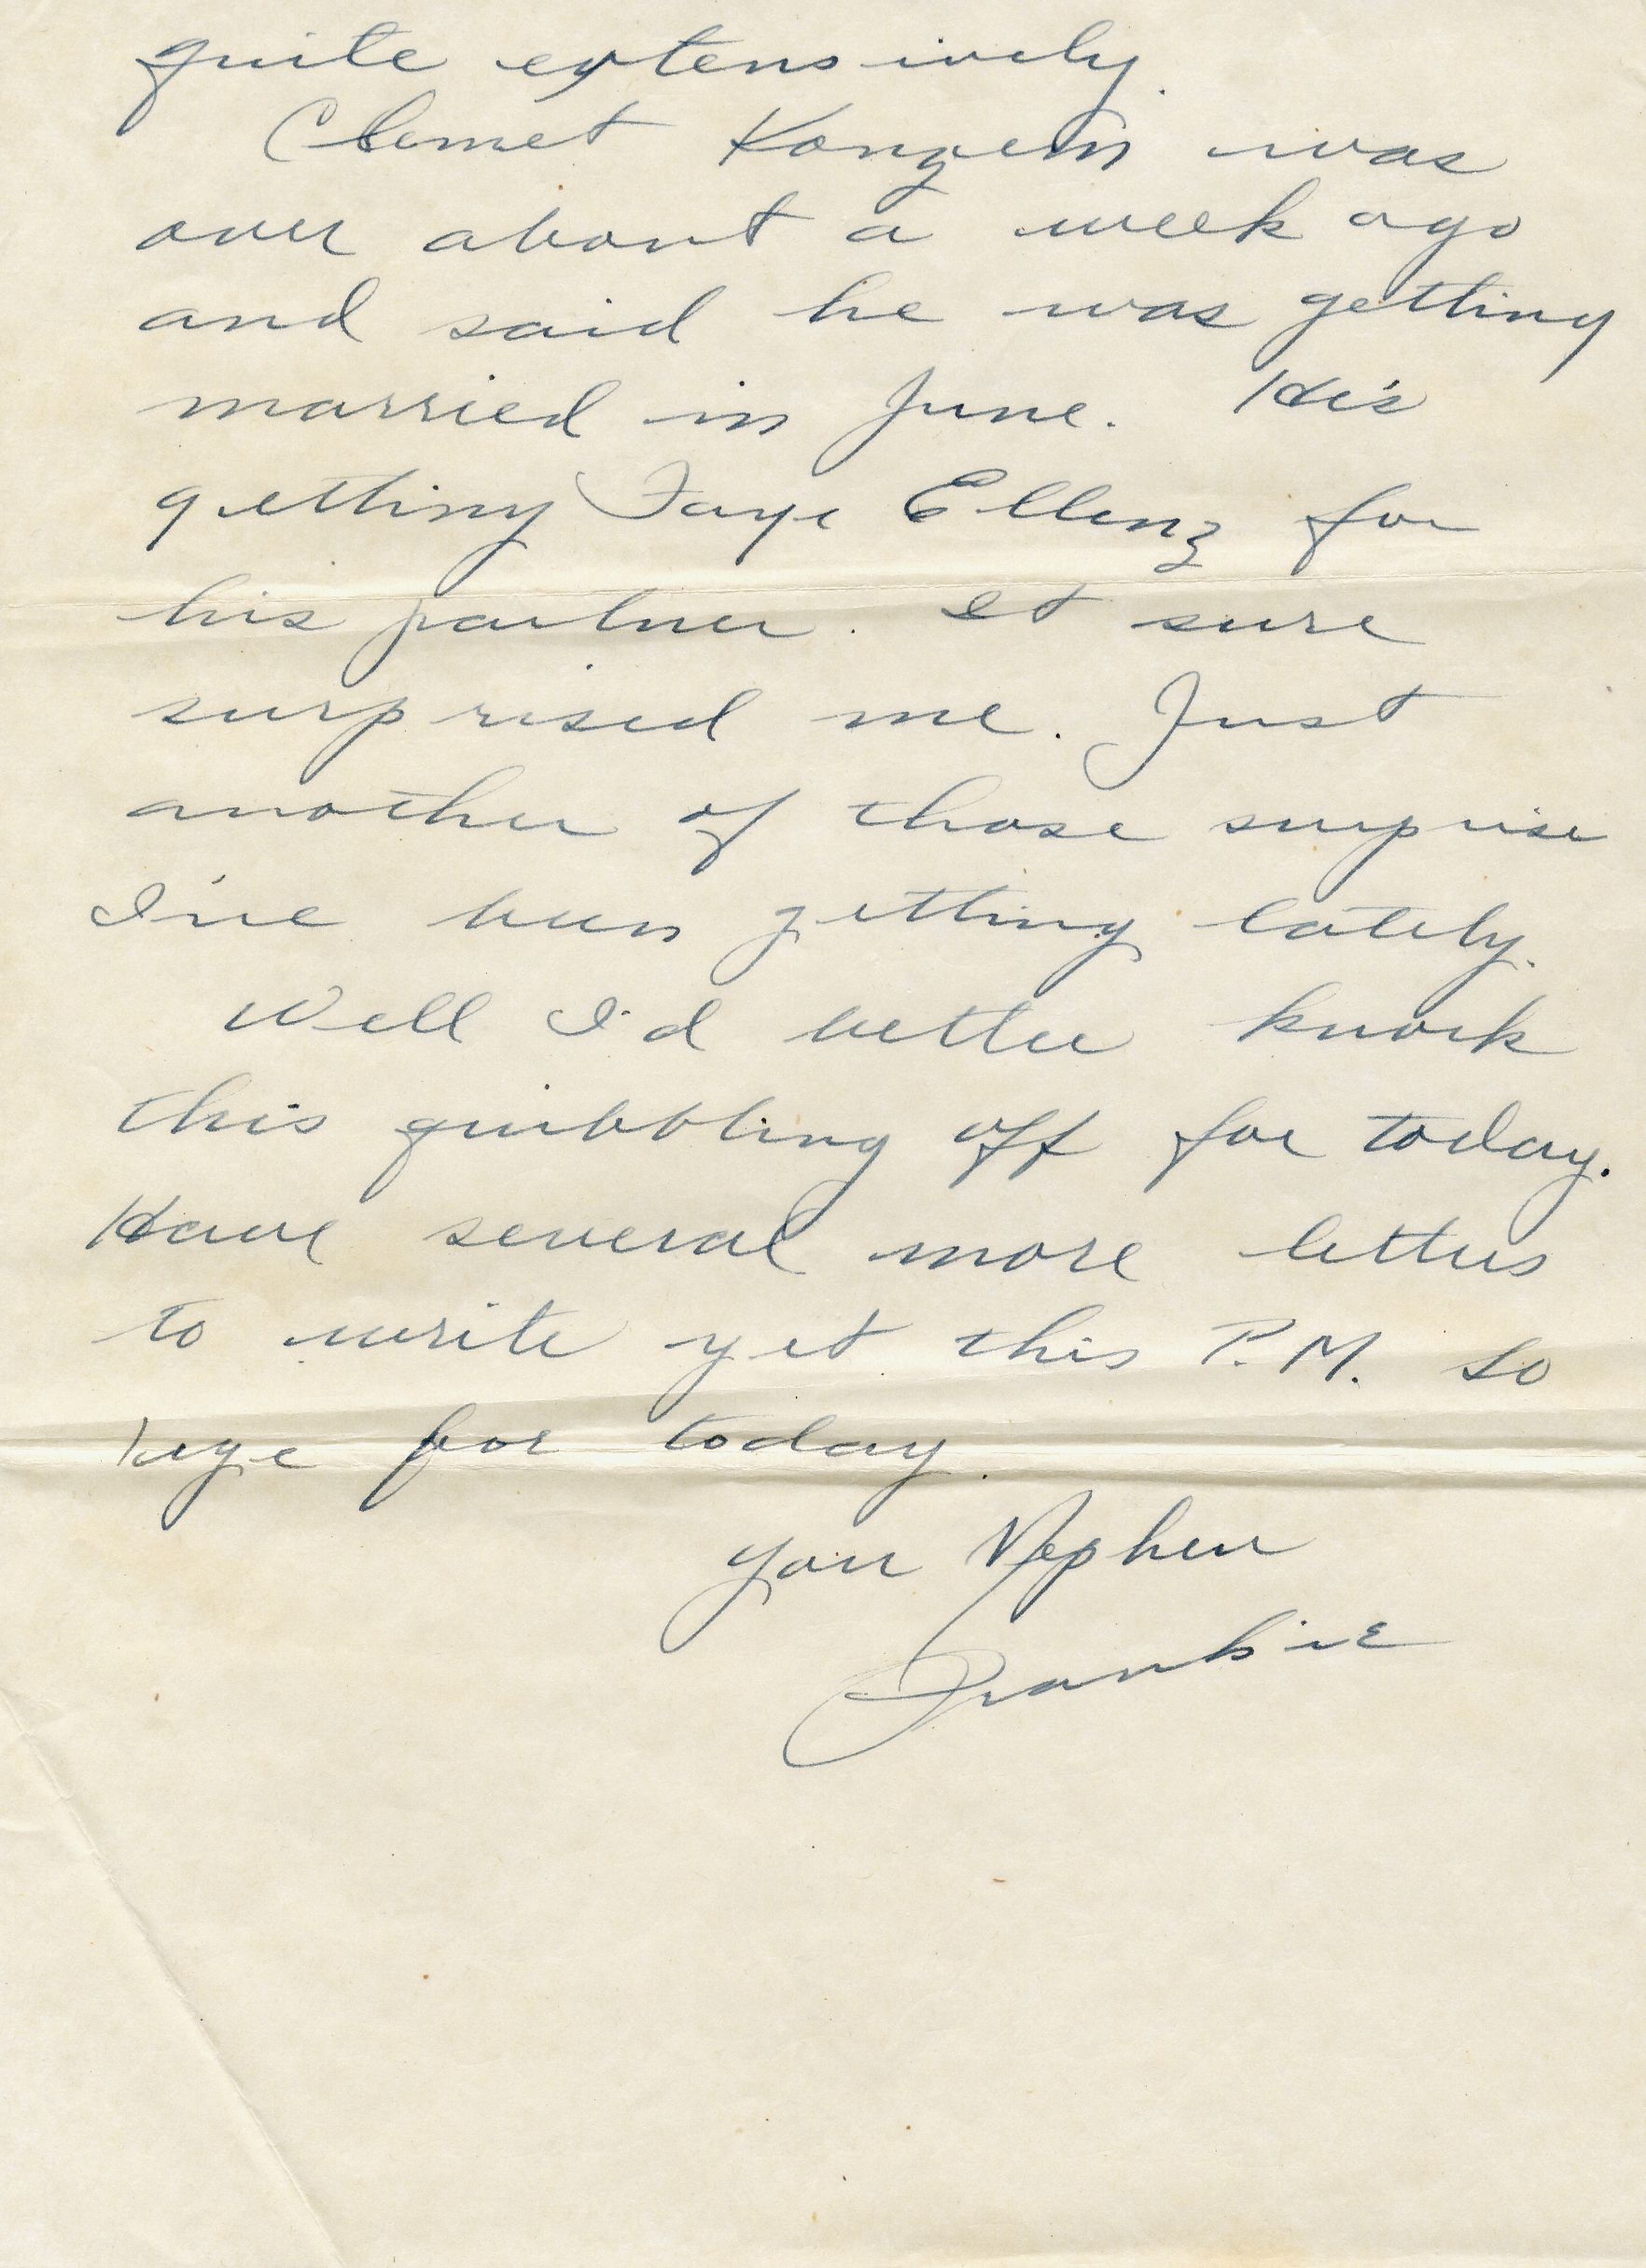 quite extensively.
Clemet Konzem was
over about a week ago
and said he was getting
married in June. He's
getting Faye Ellenz for
his partner. It sure
surprised me. Just
another of those surprise
I've been getting lately.
Well I'd better knock
this quibbling off for today.
Have several more letters
to write yet this P.M. so
bye for today.
Your Nephew
Frankie